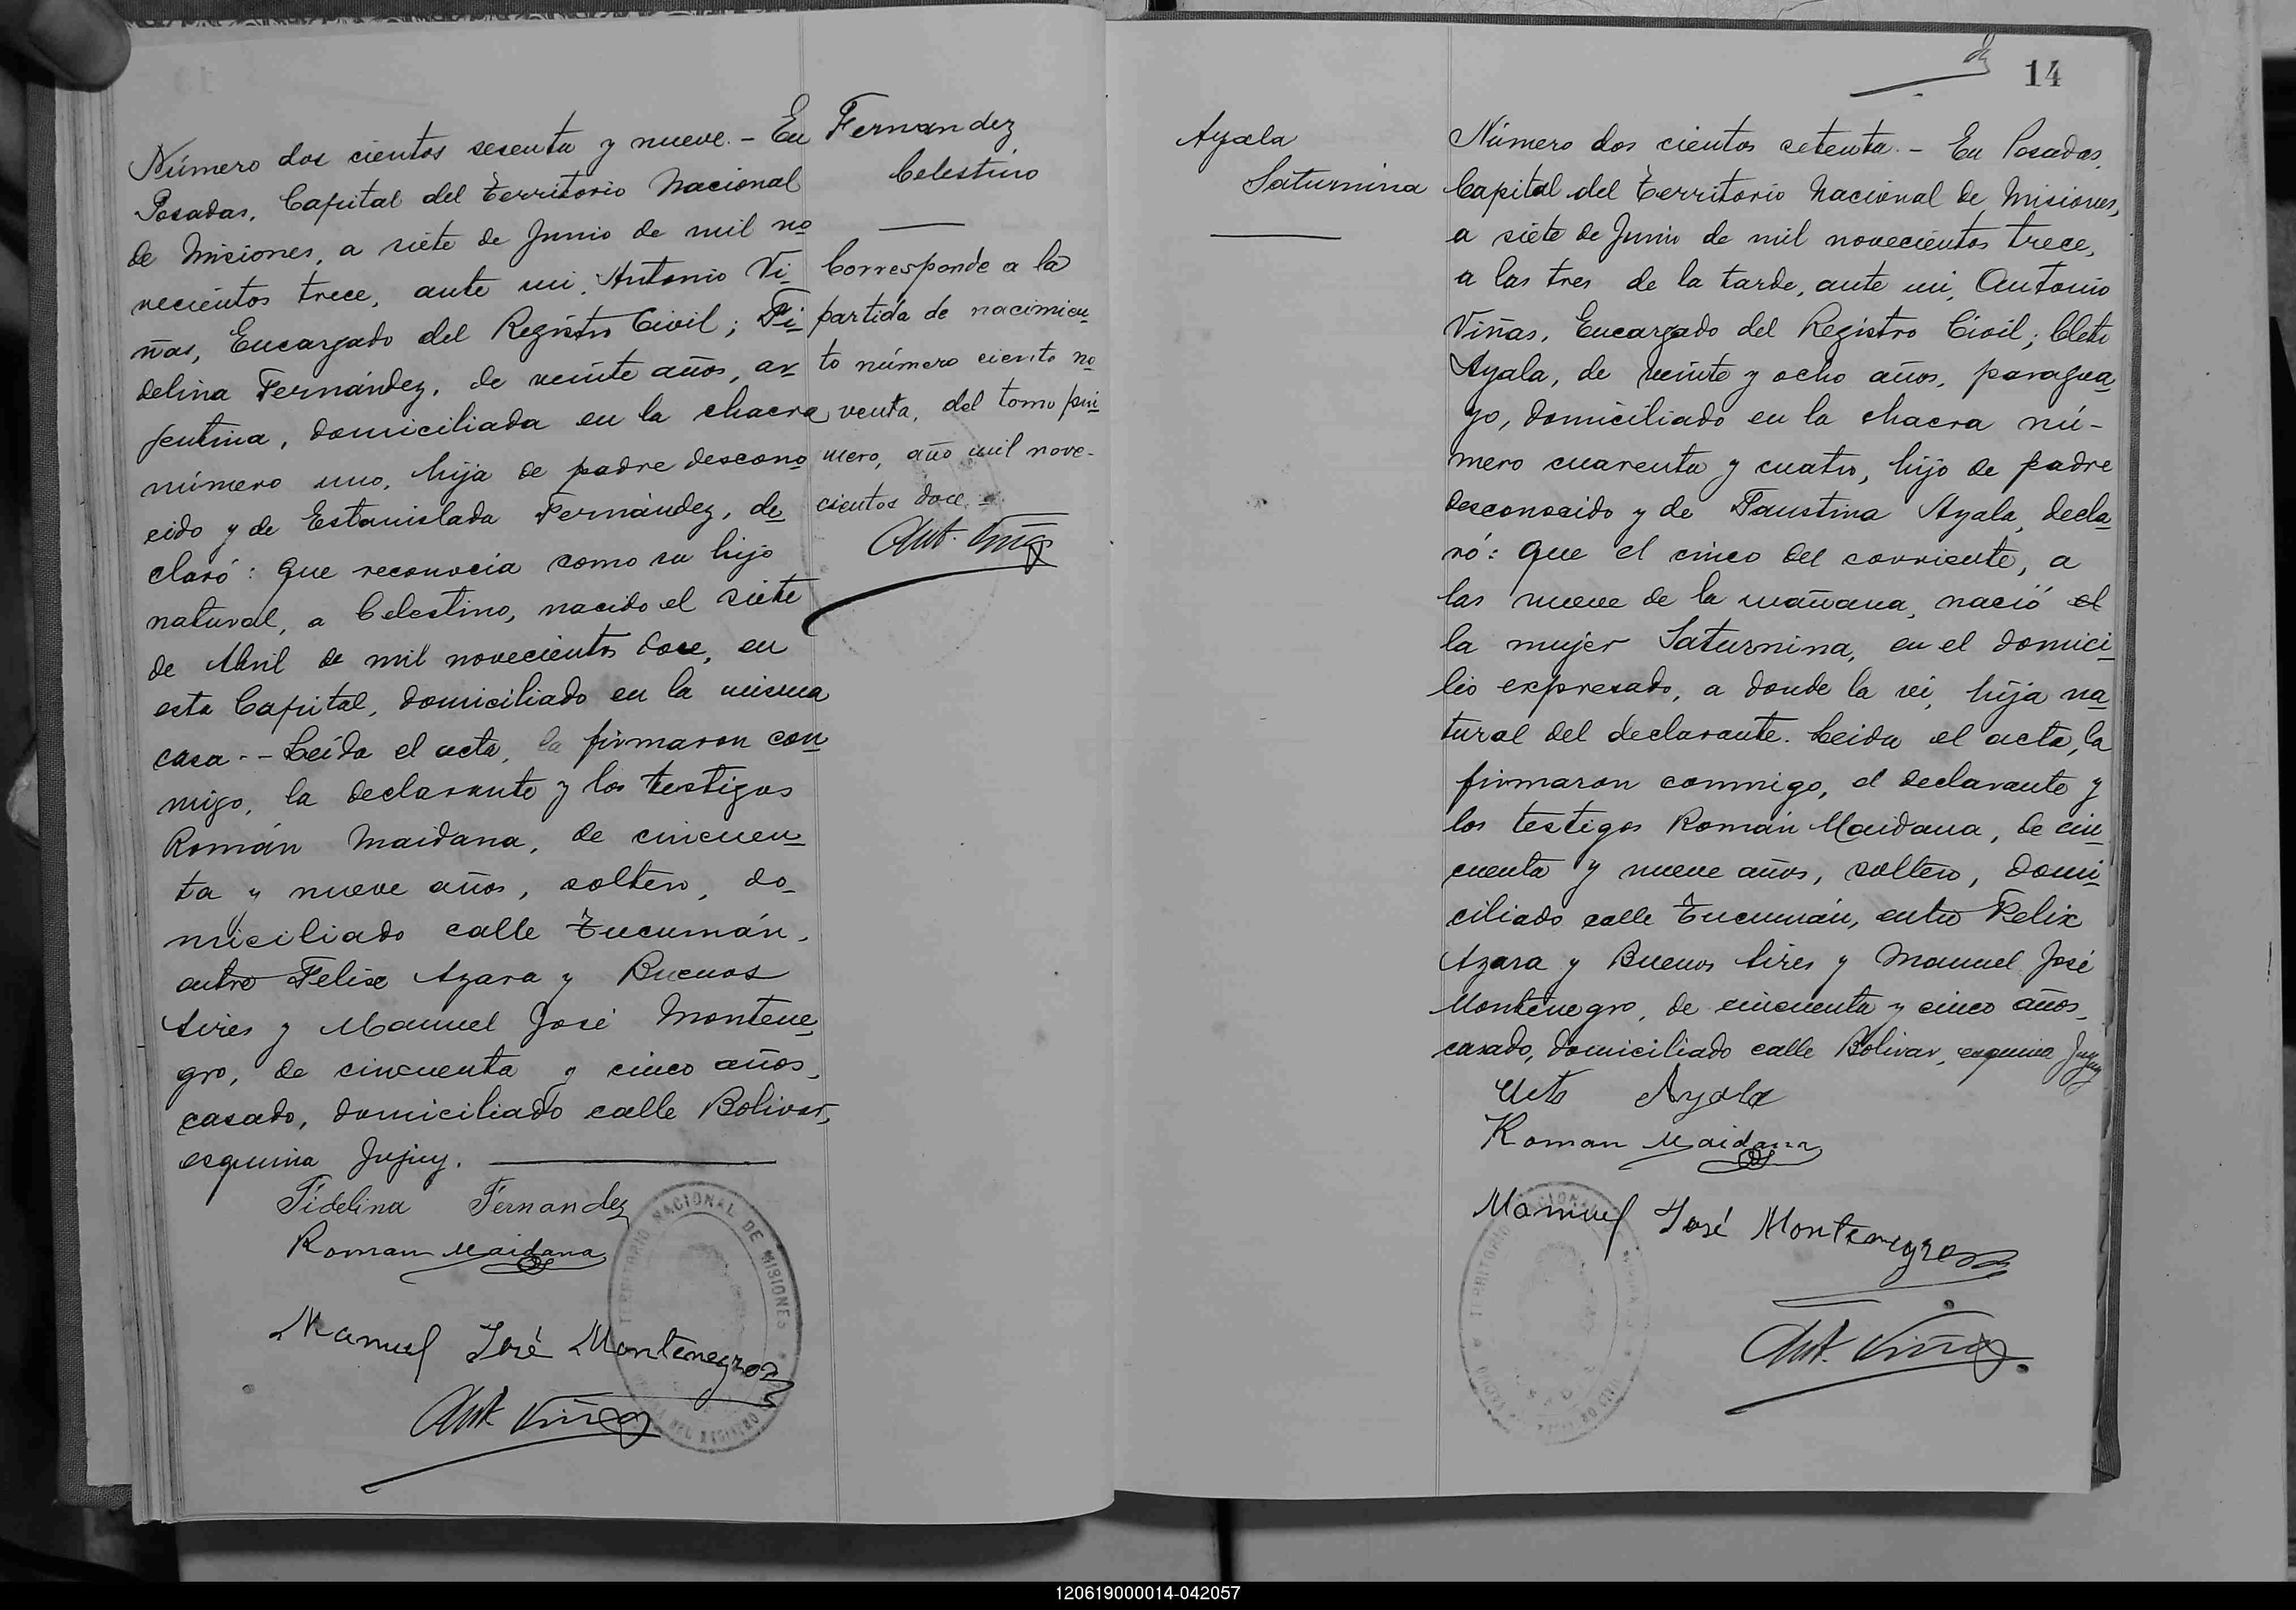 Número dos cientos sesenta y nueve. - En
Posadas, Capital del Territorio Nacional
de Misiones, a siete de Junio de mil no
vecientos trece, ante mi, Antonio Vi-
ñas, Encargado del Registro Civil; Fi
delina Fernández, de veinte años, ar
jentina, domiciliada en la chacra
número uno, hija de padre descono
cido y de Estanislada Fernández, de
claró: que reconocia como su hijo
natural, a Celestino, nacido el siete
de Abril de mil novecientos doce, en
esta Capital, domiciliado en la misma
casa. - Leída el acta, la firmaron con
migo, la declarante y los testigos
Román Maidana, de cincuen
ta y nueve años, soltero, do-
miciliado calle Tucumán,
entre Felix Azara y Buenos
Aires y Manuel José Montene
gro, de cincuenta y cinco años,
casado, domiciliado calle Bolivar,
esquina Jujuy.
Fidelina Fernandez
Roman Maidana
Manuel José Montenegro
Ant. Viñas
TERRITORIO NACIONAL DE MISIONES
DEL REGISTRO
Fernandez
Celestino
Corresponde a la
partida de nacimien
to número ciento no
venta, del tomo pri
mero, año mil nove-
cientos doce. -
Ant. Viñas
14
Ayala
Saturnina
Número dos cientos setenta. - En Posadas,
Capital del Territorio Nacional de Misiones,
a siete de Junio de mil novecientos trece,
a las tres de la tarde, ante mi, Antonio
Viñas, Encargado del Registro Civil; Cleto
Ayala, de veinte y ocho años, paragua
yo, domiciliado en la chacra nú-
mero cuarenta y cuatro, hijo de padre
desconocido y de Faustina Ayala, decla
ró: que el cinco del corriente, a
las nueve de la mañana, nació el
la mujer Saturnina, en el domici
lio expresado, a donde la ví, hija na
tural del declarante. Leida el acta, la
firmaron conmigo, el declarante y
los testigos Román Maidana, de cin
cuenta y nueve años, soltero, domi
ciliado calle Tucumán, entre Felix
Azara y Buenos Aires y Manuel José
Montenegro, de cincuenta y cinco años,
casado, domiciliado calle Bolivar, esquina Jujuy
Cleto Ayala
Roman Maidana
Manuel José Montenegro
Ant. Viñas
TERRITORIO NACIONAL
120619000014-042057